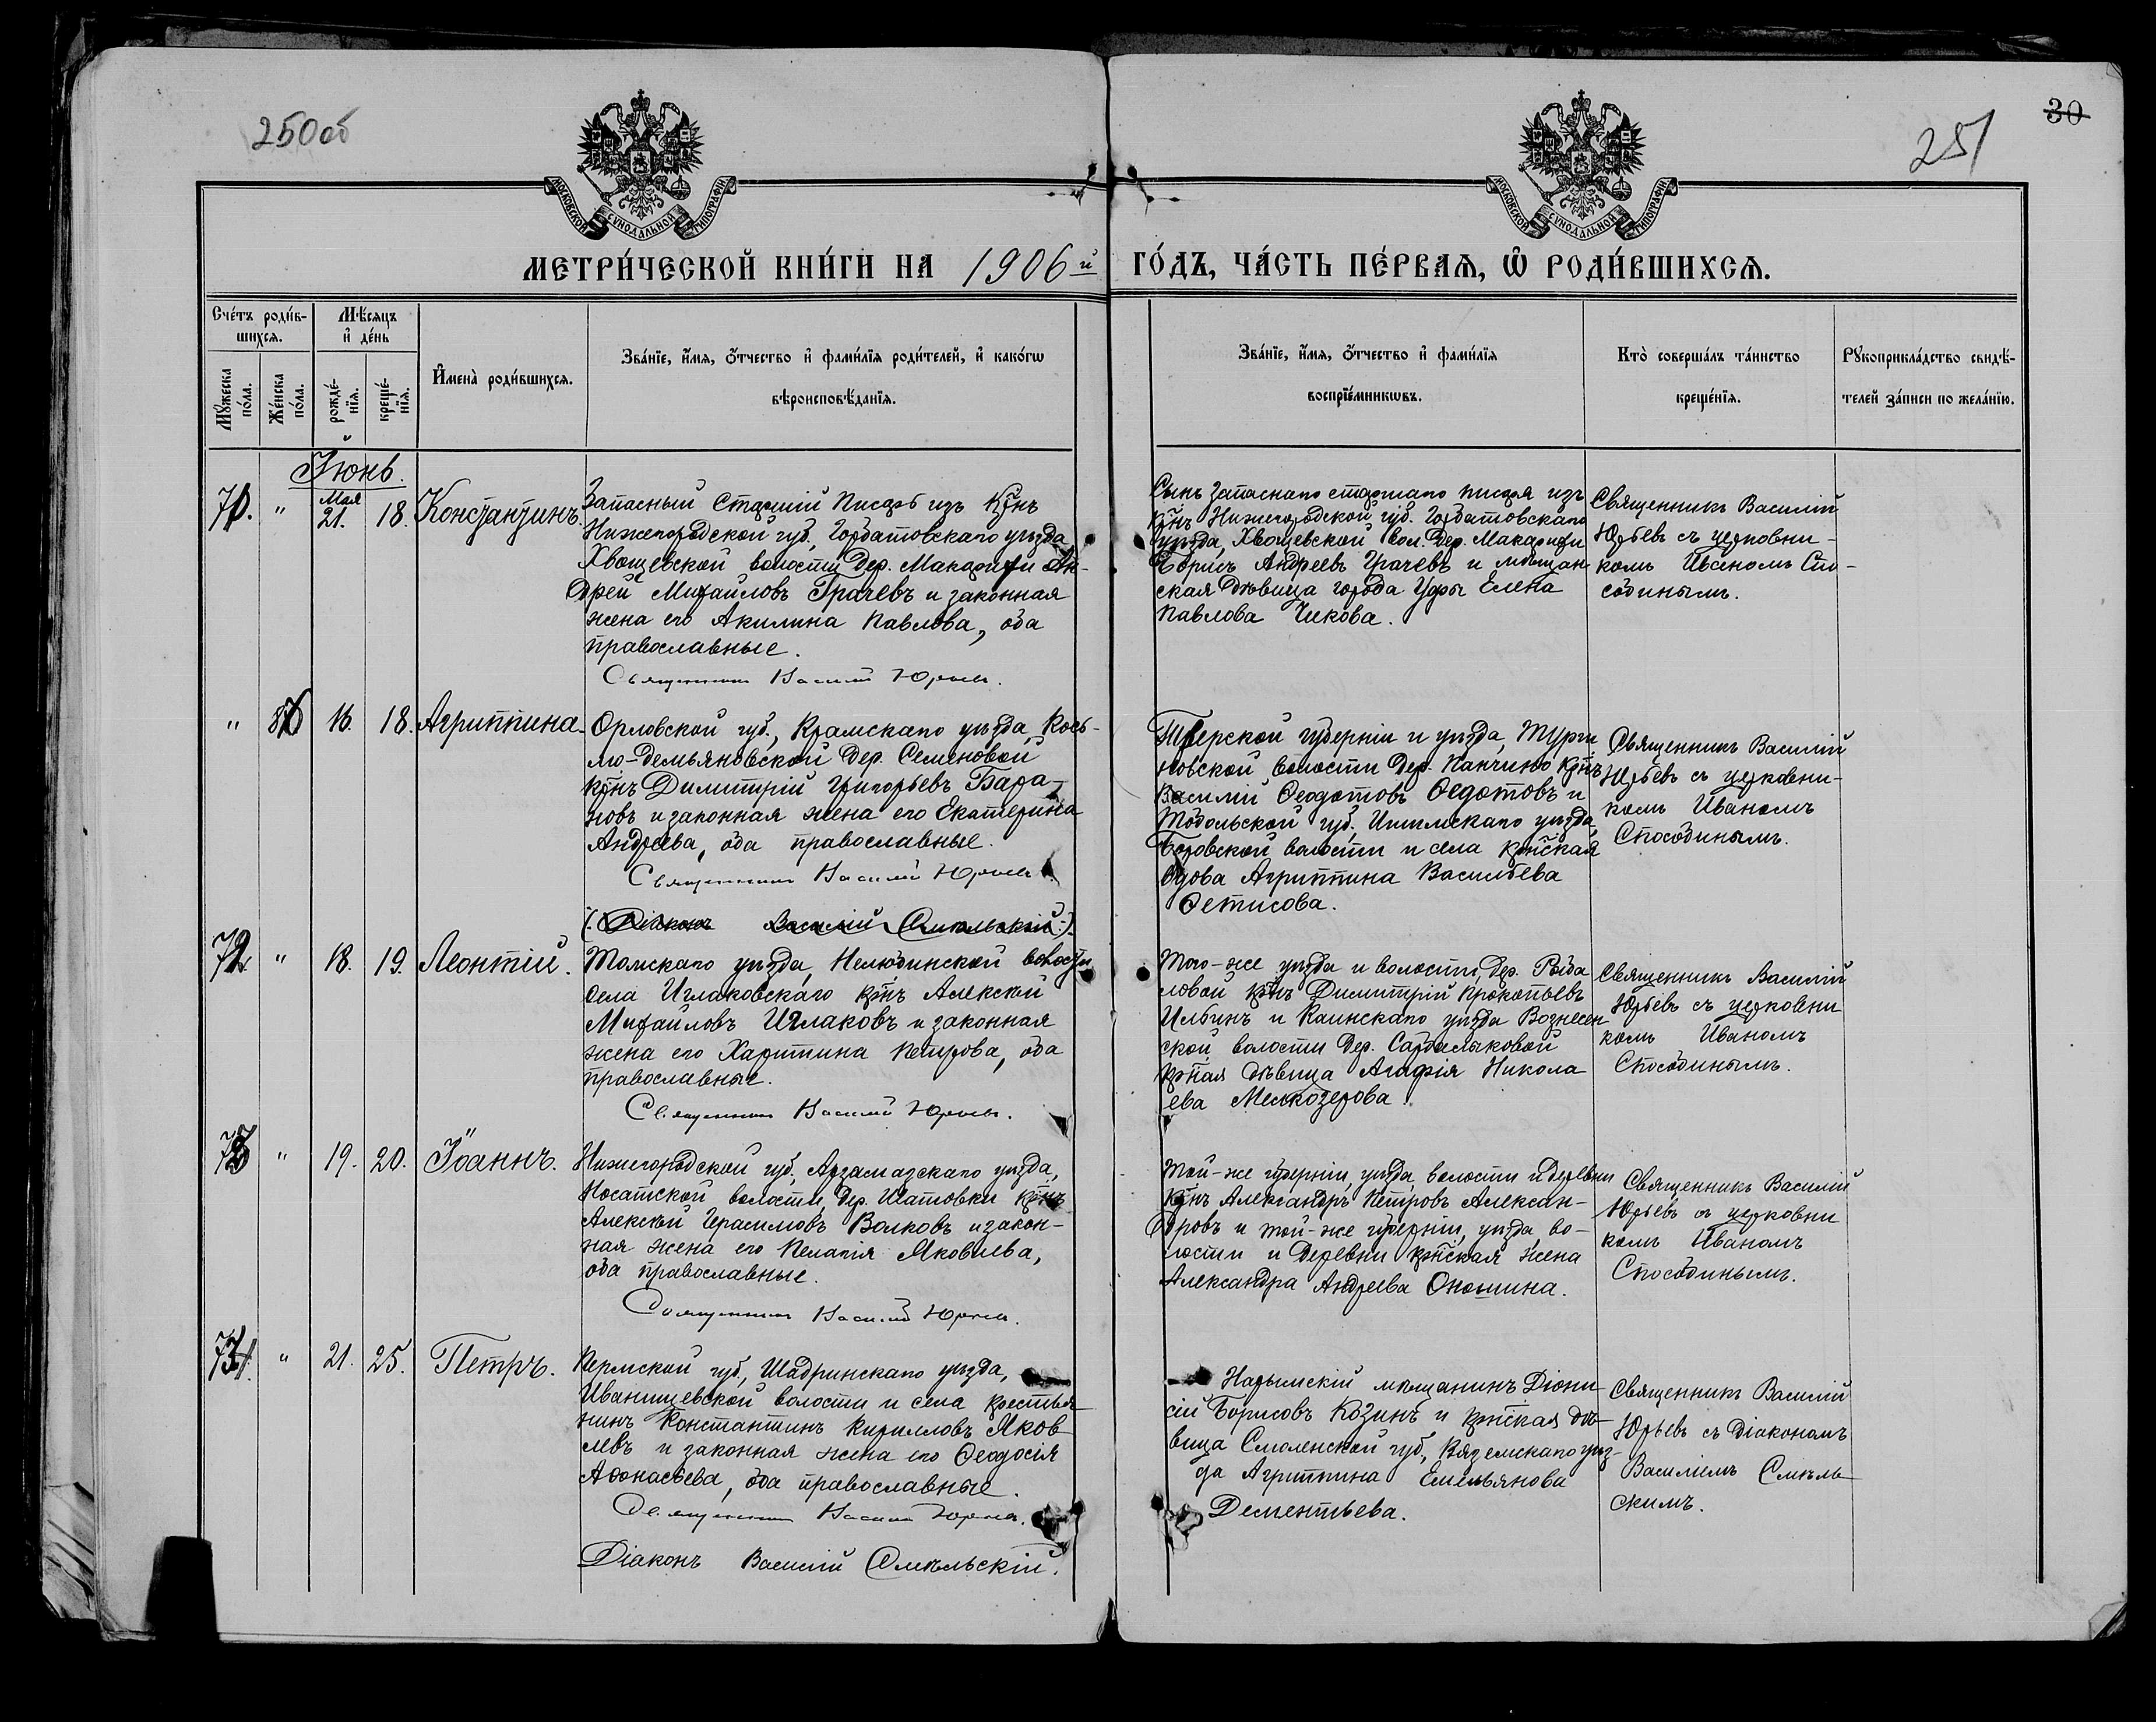 250об
251
30
МОСКОВСКОЙ СѴНОДАЛЬНОЙ ТИПОГРАФІИ
МОСКОВСКОЙ СѴНОДАЛЬНОЙ ТИПОГРАФІИ
МЕТРИ́ЧЕСКОЙ КНИ́ГИ НА 1906й ГО́ДЪ, ЧА́СТЬ ПЕ́РВАѦ, Ѡ РОДИ́ВШИХСѦ.
Сче́тъ роди́в-
шихсѧ.
Мꙋжеска по́ла.
Же́нска по́ла.
Мѣ́сѧцъ
и҆ де́нь
рожде́-
нїѧ.
креще́-
нїѧ.
И҆мена̀ роди́вшихсѧ.
Зва́нїе, и҆́мѧ, ѻ҆́тчество и҆ фами́лїѧ роди́телей, и҆ како́гѡ
вѣроисповѣ́данїѧ.
Зва́нїе, и҆́мѧ, ѻ҆́тчество и҆ фами́лїѧ
воспрїе́мникѡвъ.
Кто̀ соверша́лъ та́инство
креще́нїѧ.
Рꙋкоприкла́дство свидѣ́-
телей за́писи по жела́нїю.
Іюнь.
" Мая 21. 18. Константинъ.
Запасный Старшій Писарь изъ крнъ
Нижегородской губ., Горбатовскаго уѣзда
Хвощевской волости дер. Макарихи Ан-
дрей Михайловъ Грачевъ и законная
жена его Акилина Павлова, оба
православные.
Священникъ Василій Юрьевъ.
Сынъ запаснаго старшаго писаря изъ
крнъ Нижегородской губ. Горбатовскаго
уѣзда, Хвощевской вол. дер. Макарихи
Борисъ Андреевъ Грачевъ и мѣщан
ская дѣвица города Уфы Елена
Павлова Чикова.
Священникъ Василій
Юрьевъ съ церковни-
комъ Иваномъ Спо-
собинымъ.
" 16. 18. Агриппина.
Орловской губ., Крамскаго уѣзда, Козь-
мо-Демьяновской дер. Семеновой
крнъ Димитрій Григорьевъ Бара-
новъ и законная жена его Екатерина
Андреева, оба православные.
Священникъ Василій Юрьевъ.
Тверской губерніи и уѣзда, Турги
новской волости дер. Панчино крнъ
Василій Ѳеодотовъ Ѳедотовъ и
Тобольской губ. Ишимскаго уѣзда,
Боровской волости и села крнская
вдова Агриппина Васильева
Ѳетисова.
Священникъ Василій
Юрьевъ съ церковни-
комъ Иваномъ
Способинымъ.
(Діаконъ Василій Смѣльскій.)
72 " 18. 19. Леонтій.
Томскаго уѣзда, Нелюбинской волости
села Иглаковскаго крнъ Алексѣй
Михайловъ Иглаковъ и законная
жена его Харитина Петрова, оба
православные.
Священникъ Василій Юрьевъ.
Того-же уѣзда и волости, дер. Рыба
ловой крнъ Димитрій Прокопьевъ
Ильинъ и Каинскаго уѣзда Вознесен
ской волости дер. Сарбалыковой
крная дѣвица Агафія Никола
ева Мелкозерова.
Священникъ Василій
Юрьевъ съ церковни
комъ Иваномъ
Способинымъ.
73 " 19. 20. Іоаннъ.
Нижегородской губ., Арзамазскаго уѣзда,
Носатской волости, дер. Шатовки крнъ
Алексѣй Герасимовъ Волковъ и закон-
ная жена его Пелагія Яковлева,
оба православные.
Священникъ Василій Юрьевъ.
Той-же губерніи, уѣзда, волости и деревни
крнъ Александръ Петровъ Алексан-
дровъ и той-же губерніи, уѣзда, во-
лости и деревни крнская жена
Александра Андреева Оношина.
Священникъ Василій
Юрьевъ съ церковни
комъ Иваномъ
Способинымъ.
74. " 21. 25. Петръ.
Пермской губ., Шадринскаго уѣзда,
Иванищевской волости и села крестья
нинъ Константинъ Кирилловъ Яков
левъ и законная жена его Ѳеодосія
Аѳонасьева, оба православные.
Священникъ Василій Юрьевъ.
Діаконъ Василій Смѣльскій.
Нарымскій мѣщанинъ Діони
сій Борисовъ Козинъ и крнская дѣ-
вица Смоленской губ., Вяземскаго уѣз-
да Агриппина Емельянова
Дементьева.
Священникъ Василій
Юрьевъ съ діакономъ
Василіемъ Смѣль
скимъ.